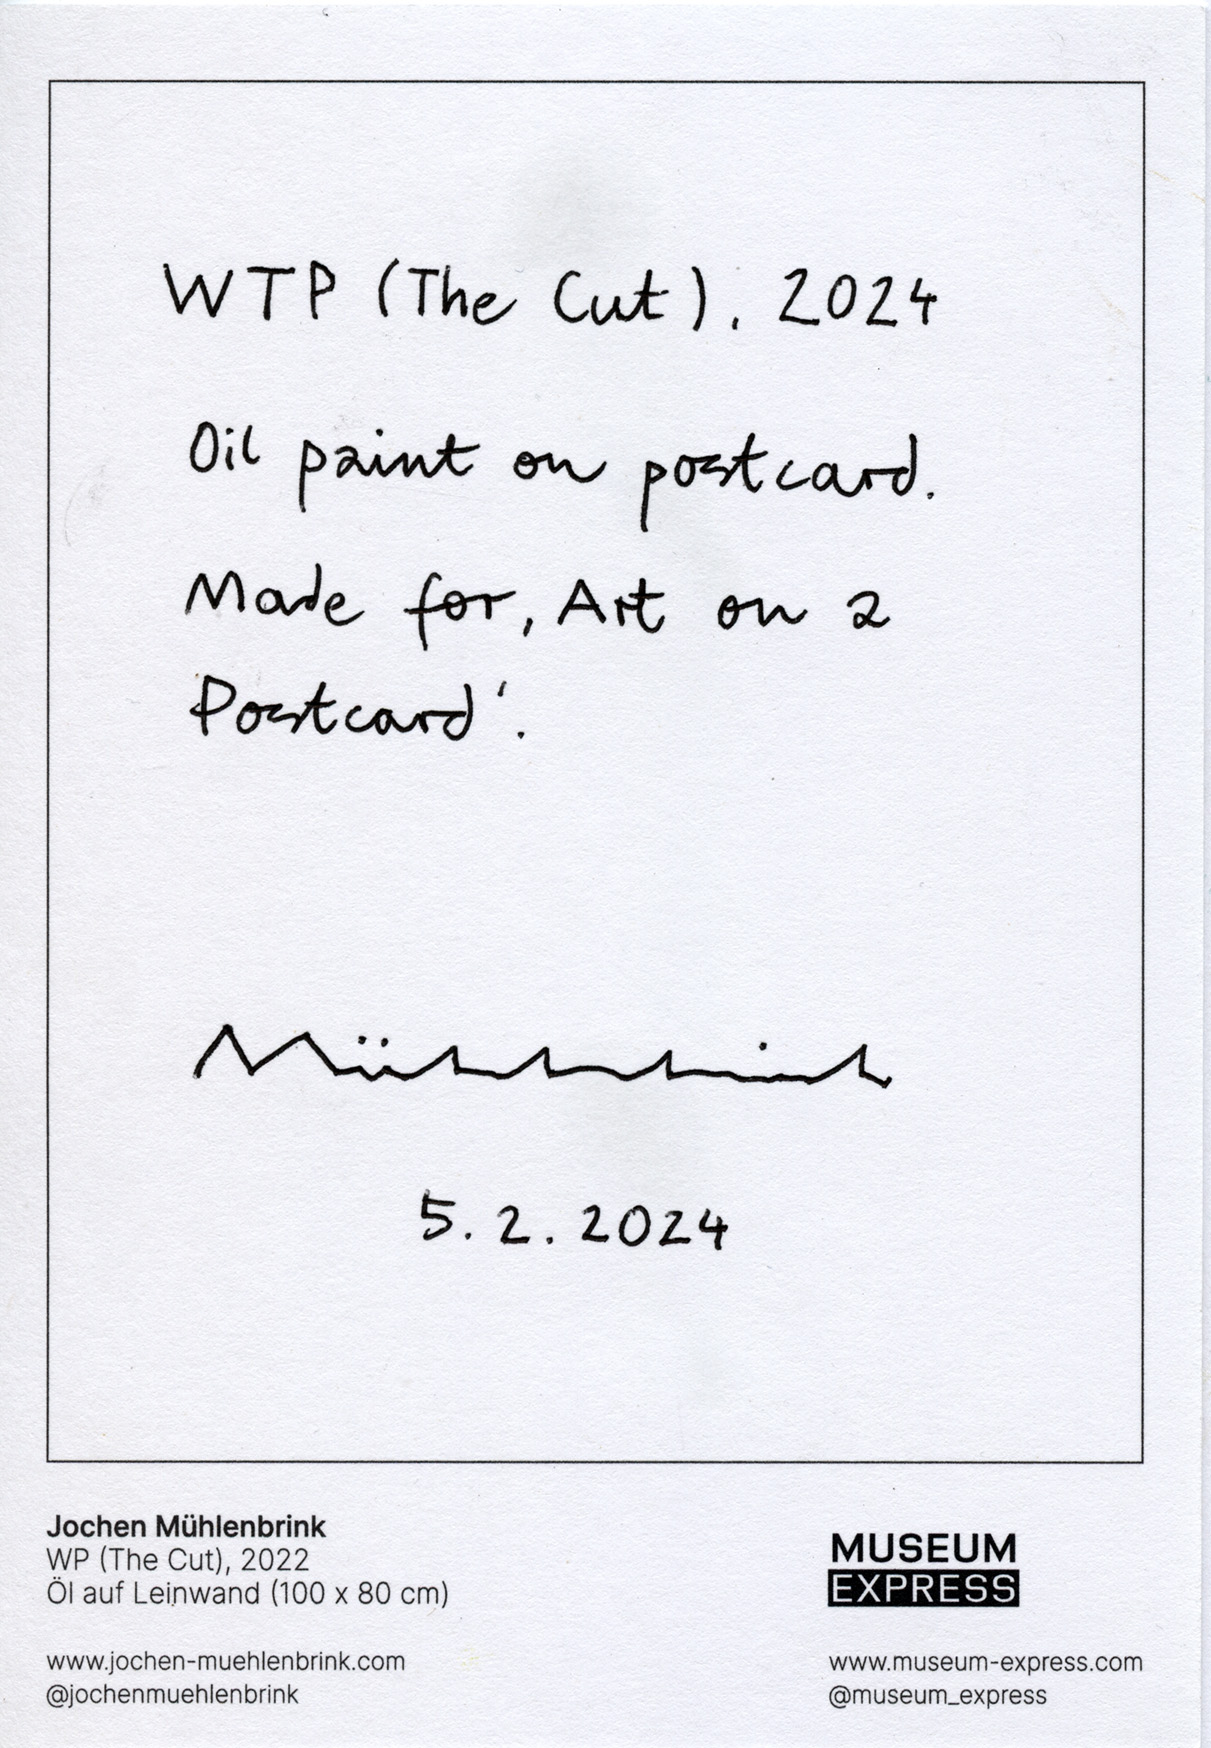 WTP (The Cut), 2024
Oil paint on postcard.
Made for, Art on a
Postcard'.
Mühlenbrink
5. 2. 2024
Jochen Mühlenbrink
WP (The Cut), 2022
Öl auf Leinwand (100 x 80 cm)
www.jochen-muehlenbrink.com
@jochenmuehlenbrink
MUSEUM
EXPRESS
www.museum-express.com
@museum_express